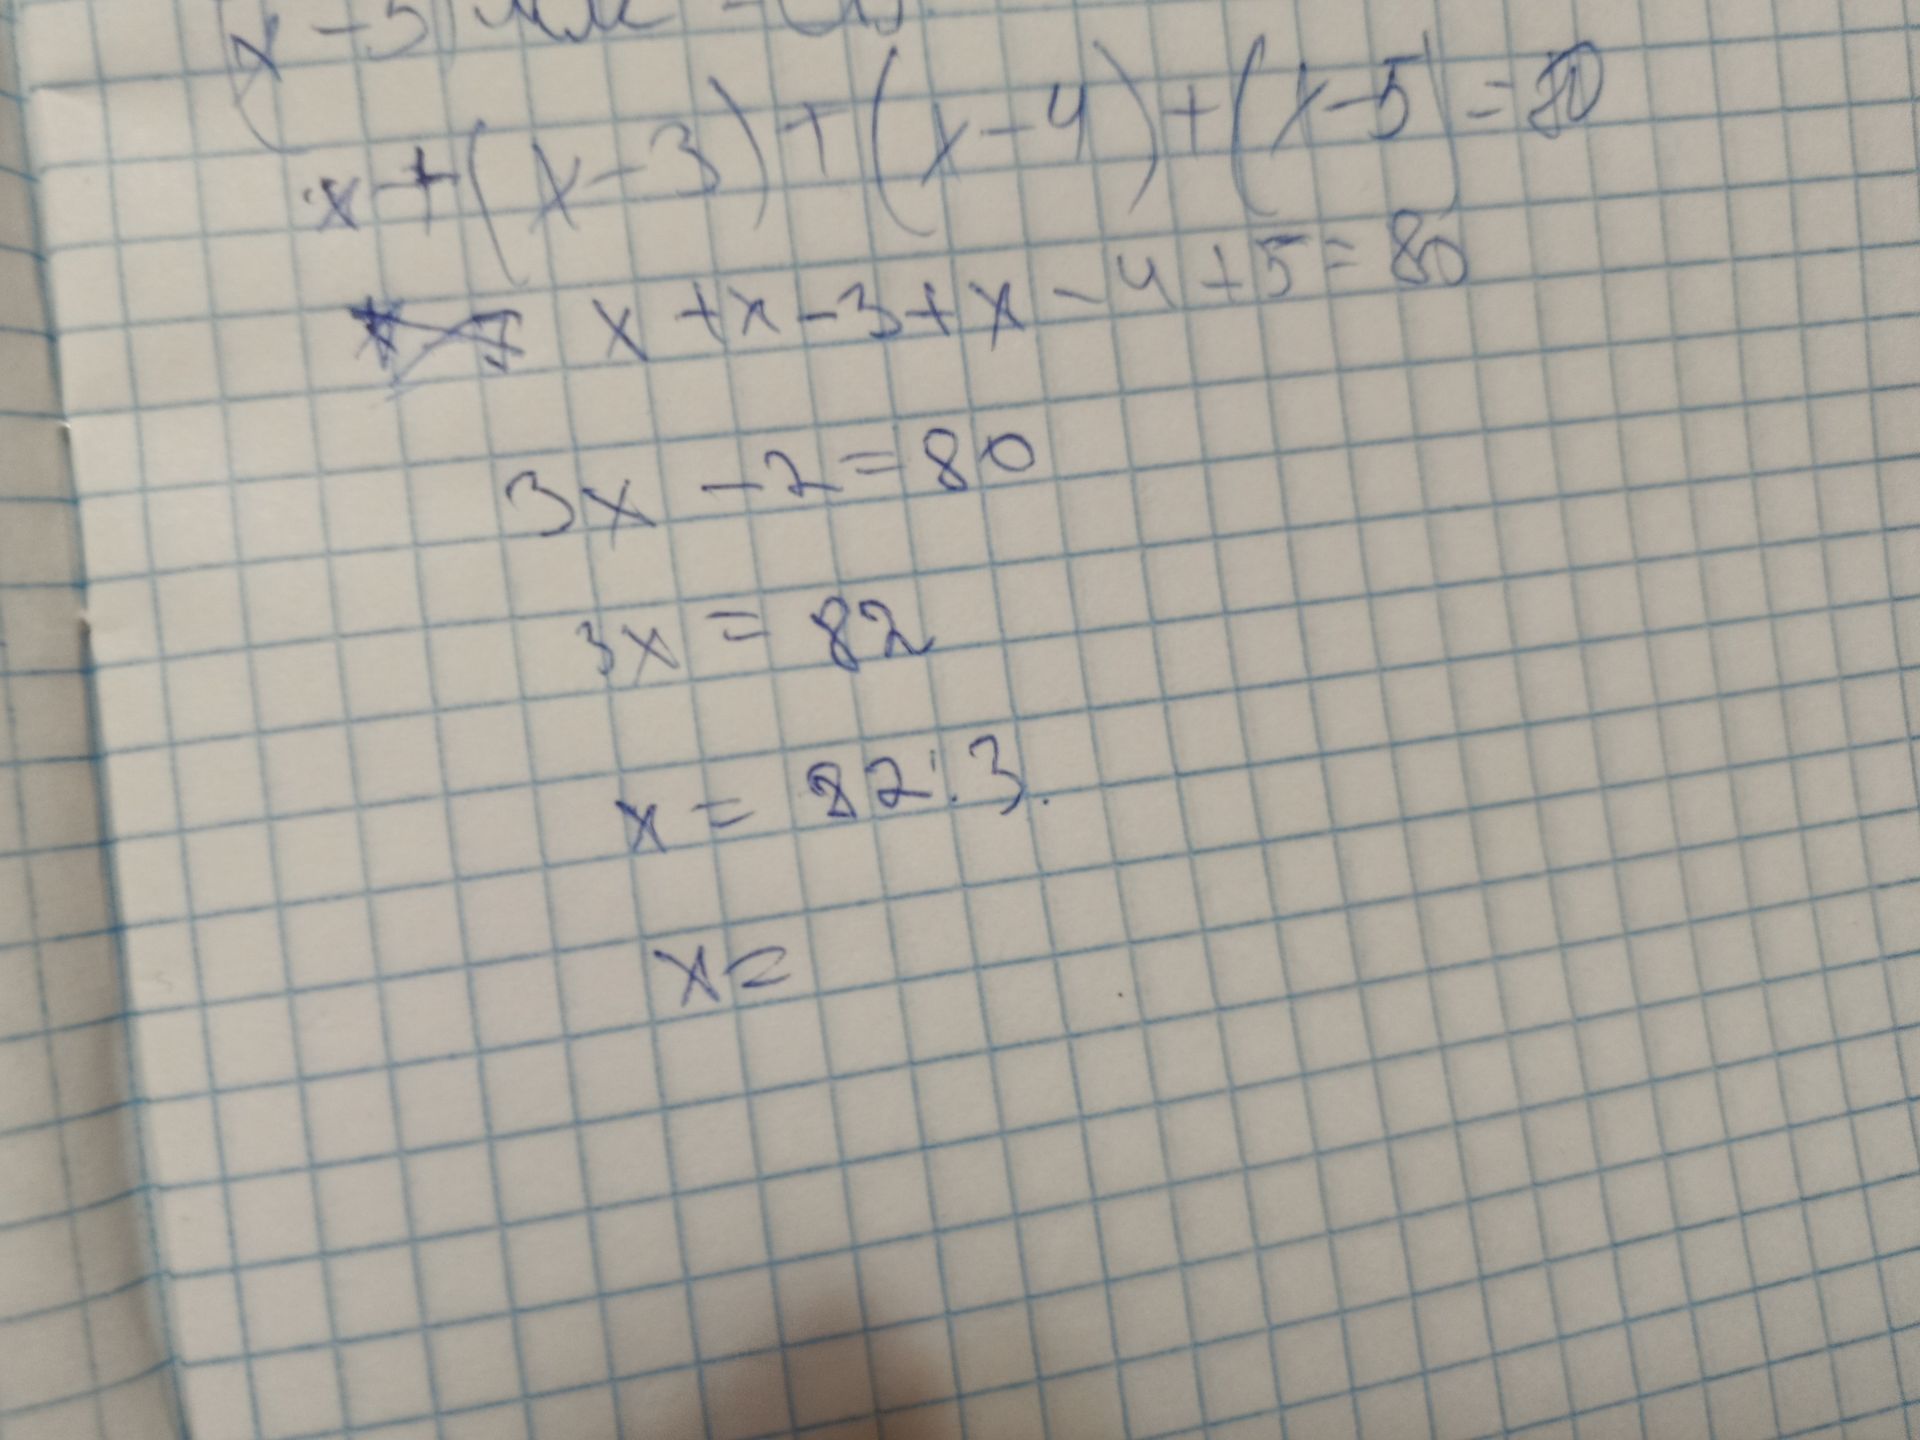 x + (x - 3) + (x - 4) + (x - 5) = 80
x + x - 3 + x - 4 + 5 = 80
3x - 2 = 80
3x = 82
x = 82 : 3.
x =